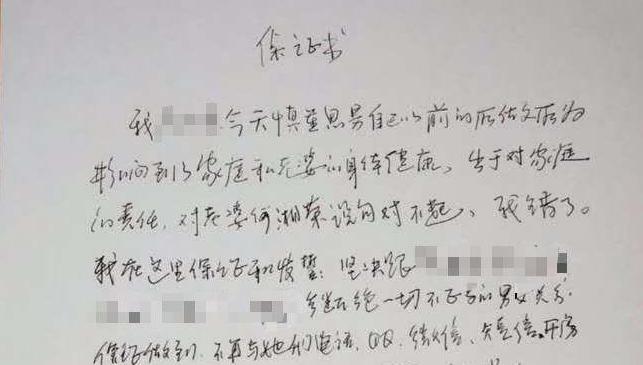 保证书
我 今天慎重思易自己以前的所做所为
影响到了家庭和老婆的身体健康、出于对家庭
的责任，对老婆何湘荣说句对不起、我错了。
我在这里保证和发誓：坚决跟
断绝一切不正当的男女关系.
保证做到.不再与她们电话、QQ、微信、短信、开房